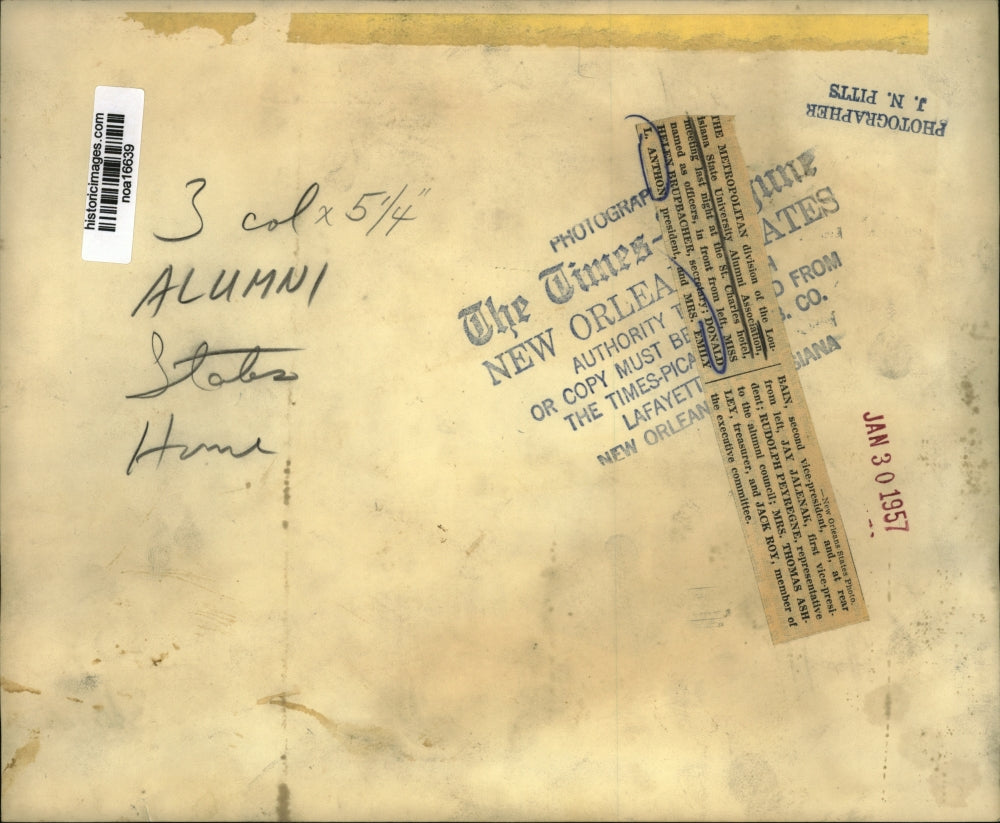 historicimages.com
noa16639
3 col x 5 1/4"
ALUMNI
States
Home
PHOTOGRAPHER
J. N. PITTS
PHOTOGRAP
The Times- yune
NEW ORLEA ATES
AUTHORITY T
OR COPY MUST BE D FROM
THE TIMES-PICA . CO.
LAFAYETT
NEW ORLEAN SIANA
THE METROPOLITAN division of the Lou-
isiana State University Alumni Association,
meeting last night at the St. Charles hotel,
named as officers, in front from left, MISS
HELEN BRUPBACHER, secretary; DONALD
L. ANTHON, president, and MRS. EMILY
—New Orleans States Photo.
BAIN, second vice-president, and, at rear
from left, JAY JALENAK, first vice-presi-
dent; RUDOLPH PEYREGNE, representative
to the alumni council; MRS. THOMAS ASH-
LEY, treasurer, and JACK ROY, member of
the executive committee.
JAN 30 1957